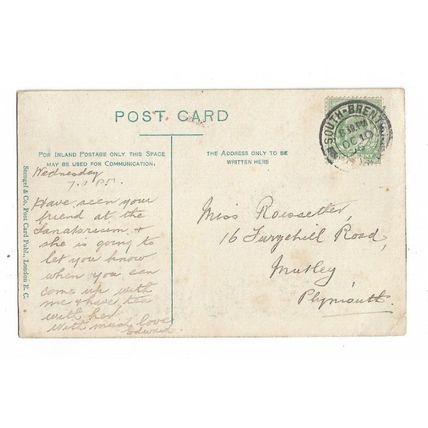 POST CARD
FOR INLAND POSTAGE ONLY THIS SPACE
MAY BE USED FOR COMMUNICATION.
THE ADDRESS ONLY TO BE
WRITTEN HERE
SOUTH-BRENT
OC 10
Stengel & Co. Post Card Publ., London E. C.
Wednesday
Have seen your
friend at the
Sanatorium &
she is going to
let you know
when you can
come up with
me & have tea
with her
With much love
Edward
Miss Rossetter,
16 Furzehill Road,
Mutley,
Plymouth.